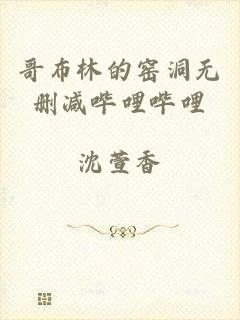 哥布林的窑洞无
删减哔哩哔哩
沈萱香